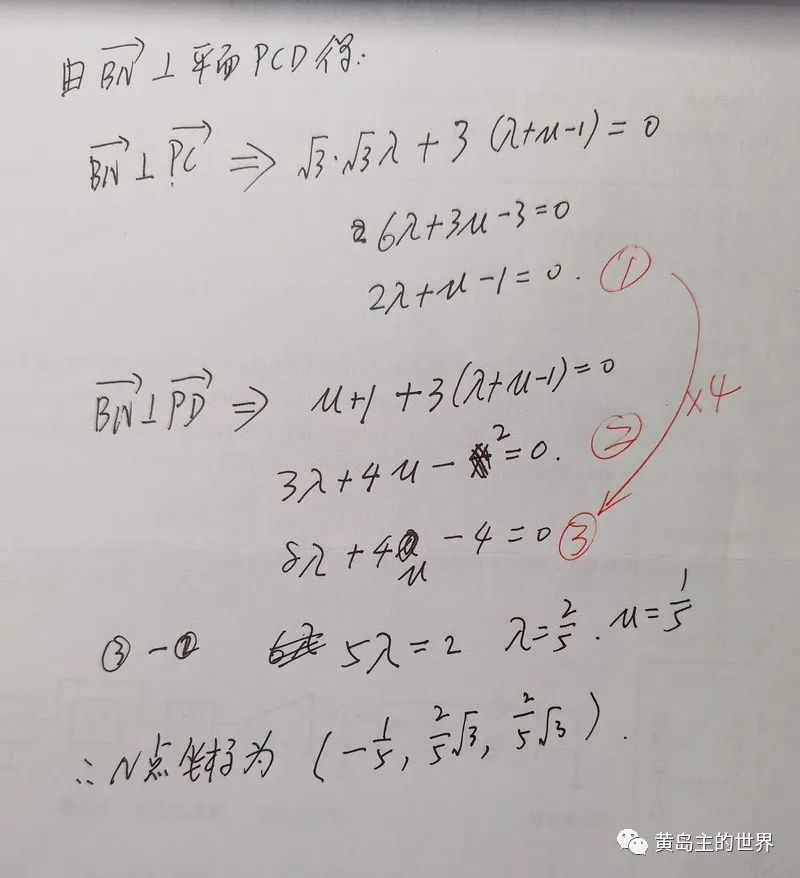 由 BN→ ⊥ 平面 PCD 得:
BN→ ⊥ PC→ ⇒ √3·√3λ + 3(λ+u-1) = 0
6λ+3u-3=0
2λ+u-1=0. ①
×4
BN→ ⊥ PD→ ⇒ u+1+3(λ+u-1)=0
3λ+4u-2=0. ②
8λ+4u-4=0 ③
③-② 5λ=2 λ=2/5. u=1/5
∴ N点坐标为 (-1/5, 2/5√3, 2/5√3).
黄岛主的世界